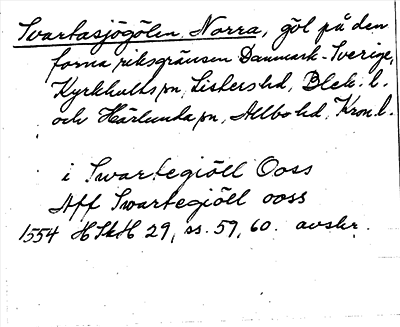 Svartasjögölen, Norra, göl på den
forna riksgränsen Danmark-Sverige,
Kyrkhults sn, Listers hd, Blek. l.
och Härlunda sn, Allbo hd, Kron. l.
i Swartegiöll Ooss
Aff Swartegiöll ooss
1554 HSkH 29, ss. 59, 60. avskr.